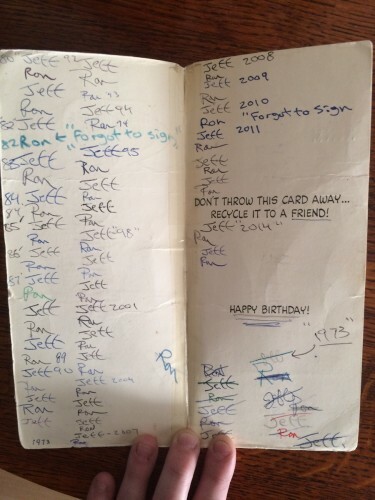 80 Jeff 92 Jeff
Ron Ron
Jeff Ron 93
Ron Jeff 94
82 Jeff Ron 94
82 Ron ← "Forgot to sign"
83 Jeff " Jeff 95
Ron Ron
Jeff
84 Jeff Ron
84 Ron Jeff
85 Jeff Ron
Ron Jeff "98"
86 Jeff Ron
Ron Jeff
87 Jeff Ron
Ron Jeff
Jeff Ron
Ron Jeff 2001
Jeff Ron
Ron 89 Jeff
Jeff 90 Ron
Ron Jeff 2004
Jeff Ron
Ron Jeff
Jeff Ron
Jeff
Ron
Jeff - 2007
1973 Ron
Ron
Jeff 2008
Ron
Jeff 2009
Ron
Jeff 2010
Ron "Forgot to Sign
Jeff 2011
Ron
Jeff
Ron
Jeff
Ron
DON'T THROW THIS CARD AWAY...
RECYCLE IT TO A FRIEND!
Jeff "2014"
Ron
Jeff
Ron
HAPPY BIRTHDAY!
"1973"
Ron
Jeff Ron
Ron Jeff
Jeff Ron
Ron Jeff
Ron Ron
Jeff Jeff